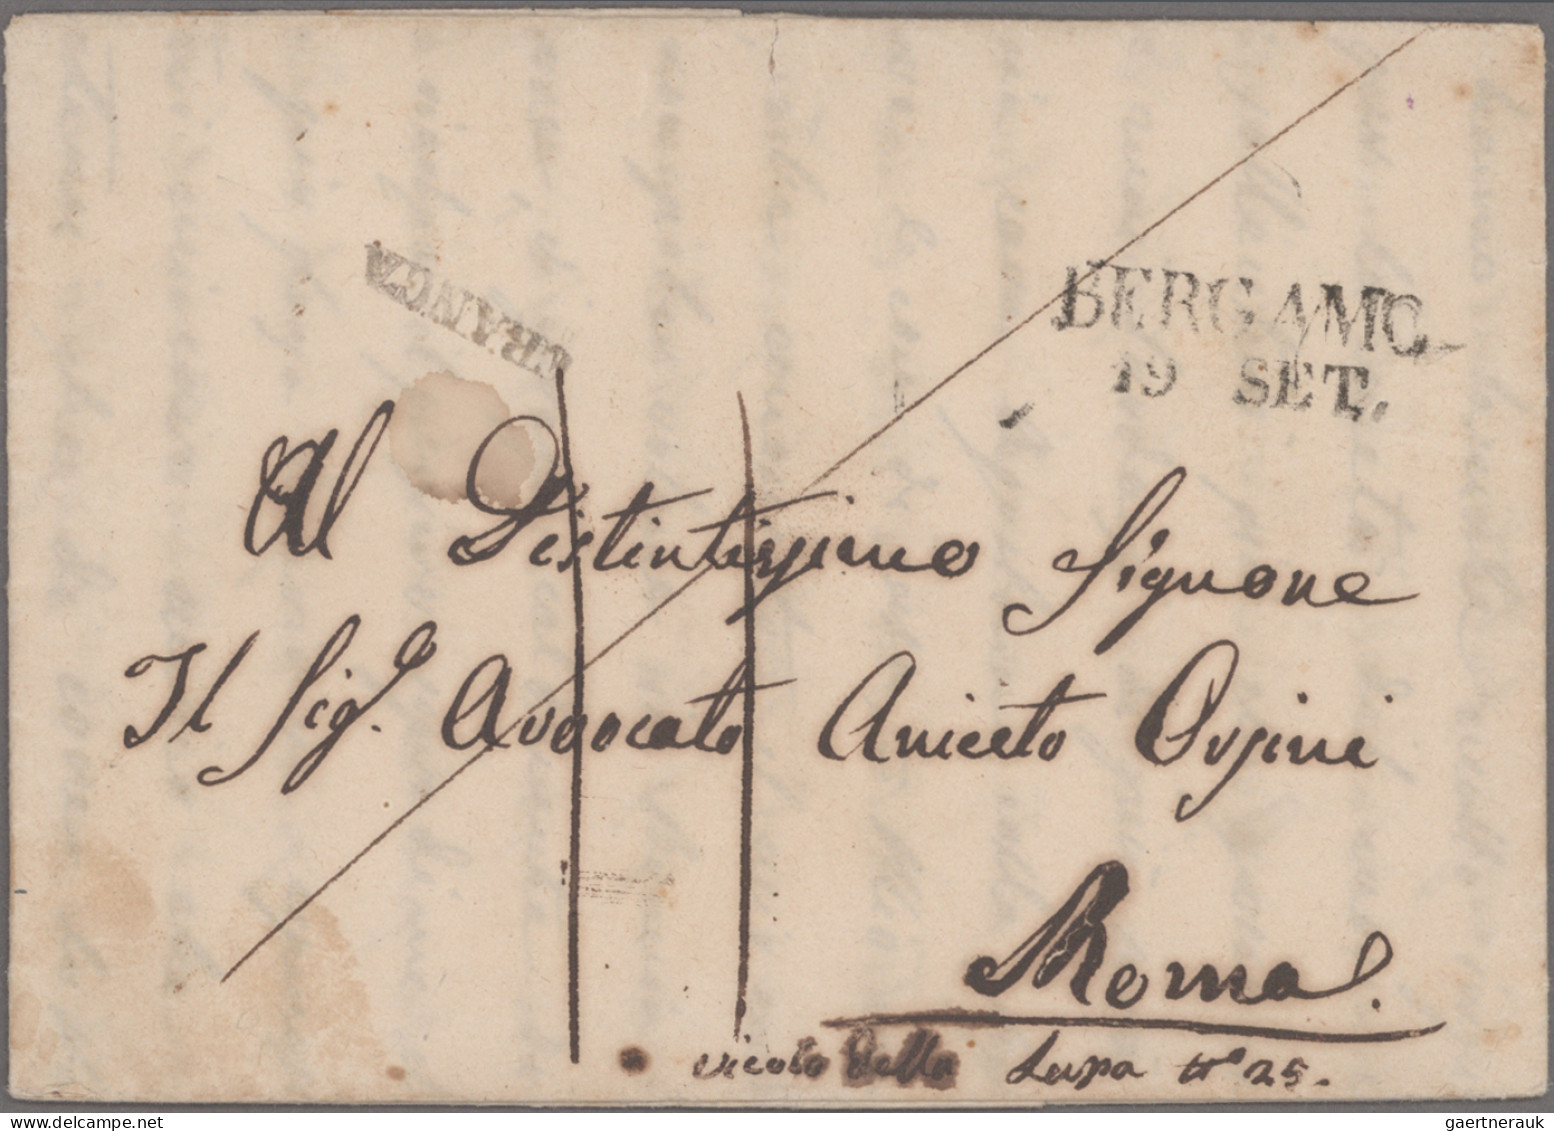 BERGAMO
19 SET.
FRANCA
Al Distintissimo Signore
Il Sig.e Avvocato Aniceto Orsini
Roma.
vicolo della Lupa No 25.
gaertnerauk